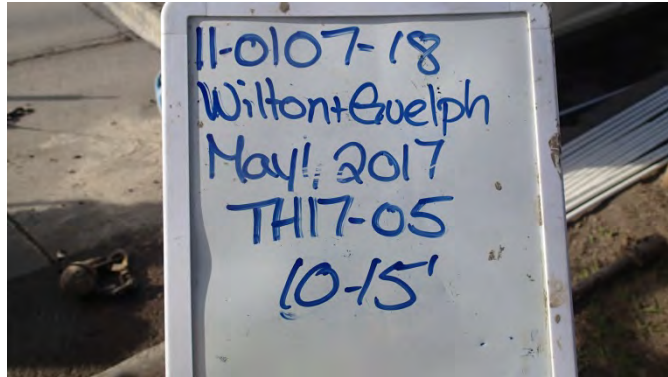 11-0107-18
Wilton+Guelph
May 1, 2017
TH17-05
10-15'